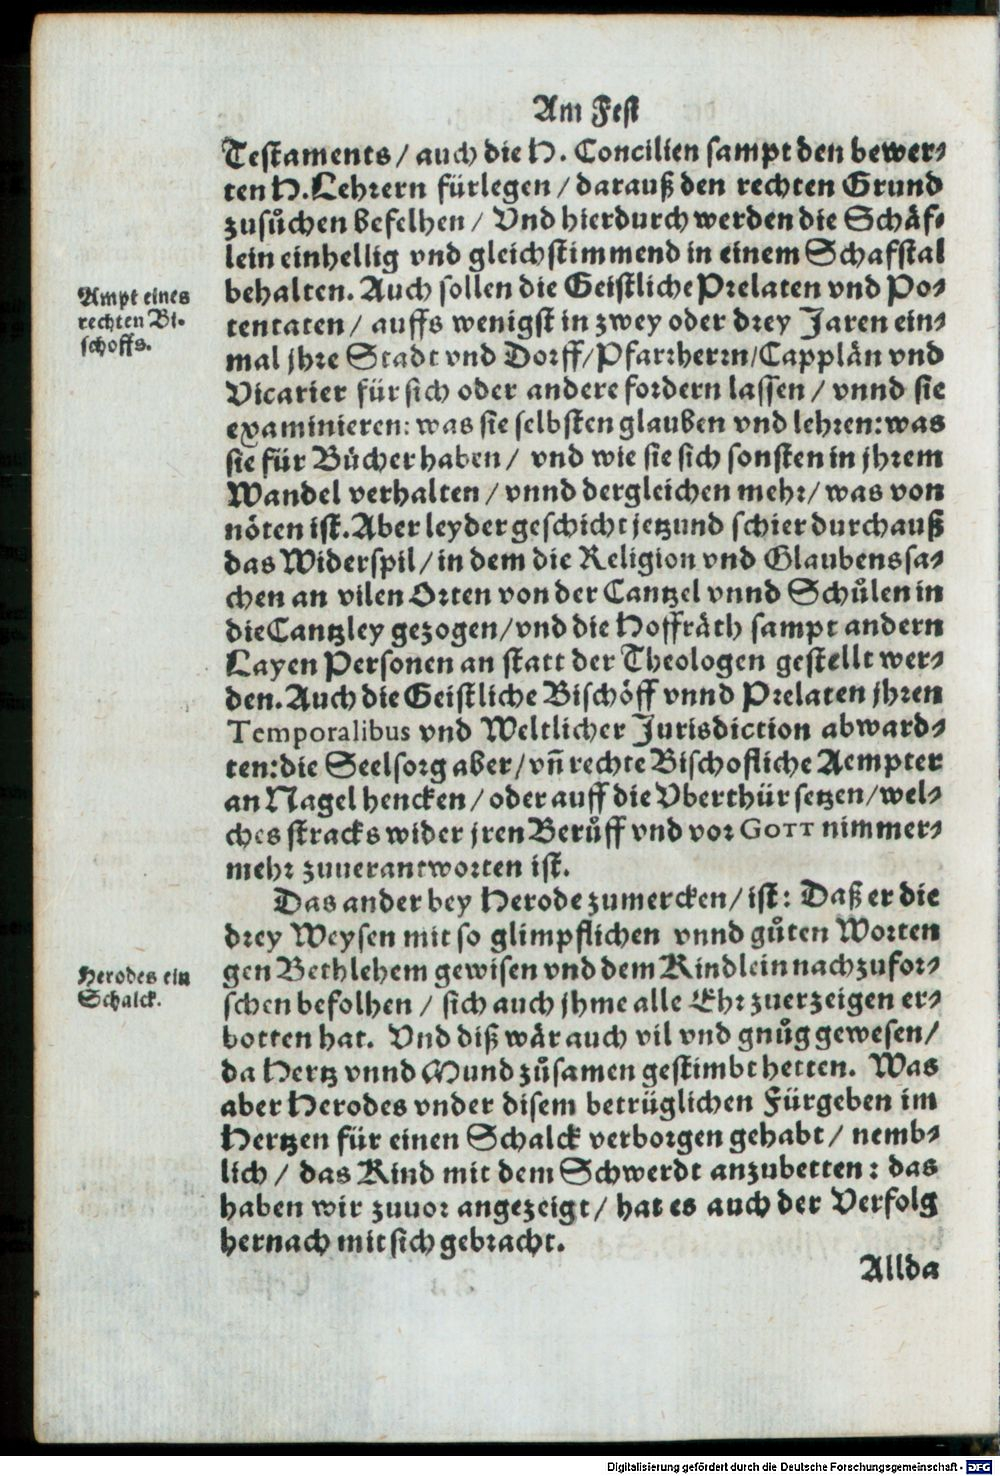 Am Fest
Testaments / auch die H. Concilien sampt den bewer⸗
ten H. Lehrern fürlegen / darauß den rechten Grund
zusůchen befelhen / Vnd hierdurch werden die Schäf⸗
lein einhellig vnd gleichstimmend in einem Schafstal
behalten. Auch sollen die Geistliche Prelaten vnd Po⸗
tentaten / auffs wenigst in zwey oder drey Jaren ein⸗
mal jhre Stadt vnd Dorff/Pfarrherrn/Capplän vnd
Vicarier für sich oder andere fordern lassen / vnnd sie
examinieren: was sie selbsten glauben vnd lehren: was
sie für Bücher haben / vnd wie sie sich sonsten in jhrem
Wandel verhalten / vnnd dergleichen mehr/ was von
nöten ist. Aber leyder geschicht jetzund schier durchauß
das Widerspil / in dem die Religion vnd Glaubenssa⸗
chen an vilen Orten von der Cantzel vnnd Schůlen in
die Cantzley gezogen/vnd die Hoffräth sampt andern
Layen Personen an statt der Theologen gestellt wer⸗
den. Auch die Geistliche Bischöff vnnd Prelaten jhren
Temporalibus vnd Weltlicher Jurisdiction abward⸗
ten: die Seelsorg aber / vñ rechte Bischofliche Aempter
an Nagel hencken / oder auff die Vberthür setzen/wel⸗
ches stracks wider jren Berůff vnd vor GOTT nimmer⸗
mehr zuuerantworten ist.
Das ander bey Herode zumercken / ist: Daß er die
drey Weysen mit so glimpflichen vnnd gůten Worten
gen Bethlehem gewisen vnd dem Kindlein nachzufor⸗
schen befolhen / sich auch jhme alle Ehr zuerzeigen er⸗
botten hat. Vnd diß wär auch vil vnd gnůg gewesen/
da Hertz vnnd Mund zůsamen gestimbt hetten. Was
aber Herodes vnder disem betrüglichen Fürgeben im
Hertzen für einen Schalck verborgen gehabt / nemb⸗
lich / das Kind mit dem Schwerdt anzubetten: das
haben wir zuuor angezeigt / hat es auch der Verfolg
hernach mit sich gebracht.
Allda
Ampt eines
rechten Bi⸗
schoffs.
Herodes ein
Schalck.
Digitalisierung gefördert durch die Deutsche Forschungsgemeinschaft - DFG